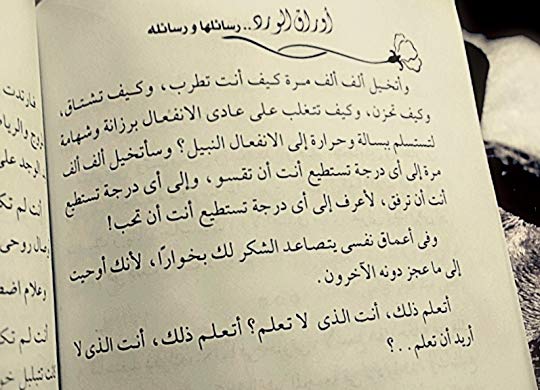 أوراق الورد.. رسائلها ورسائله
وأتخيل ألف ألف مرة كيف أنت تطرب، وكيف تشتاق،
وكيف تحزن، وكيف تتغلب على عادى الانفعال برزانة وشهامة
لتستسلم ببسالة وحرارة إلى الانفعال النبيل؟ وسأتخيل ألف ألف
مرة إلى أى درجة تستطيع أنت أن تقسو، وإلى أى درجة تستطيع
أنت أن ترفق، لأعرف إلى أى درجة تستطيع أنت أن تحب!
وفى أعماق نفسى يتصاعد الشكر لك بخورًا، لأنك أوحيت
إلى ما عجز دونه الآخرون.
أتعلم ذلك، أنت الذى لا تعلم؟ أتعلم ذلك، أنت الذى لا
أريد أن تعلم..؟
فارتدت
الوجد على
أنت لم تك
وصال روحى
وعلام اضط
أنت لم تك